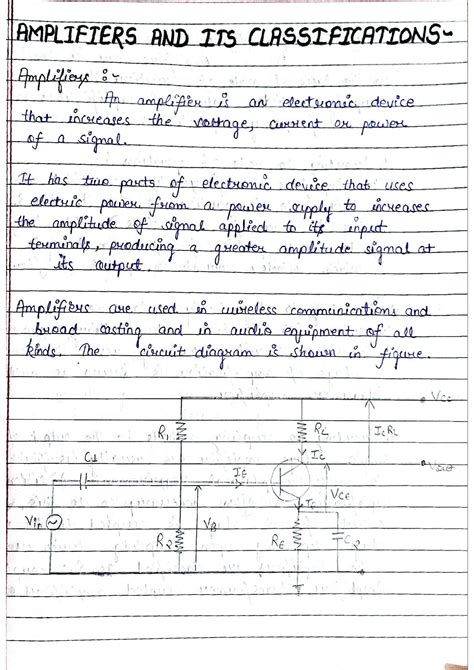 AMPLIFIERS AND ITS CLASSIFICATIONS~
Amplifiers :-
An amplifier is an electronic device
that increases the voltage, current or power
of a signal.
It has two parts of electronic device that uses
electric power from a power supply to increases
the amplitude of signal applied to its input
terminals, producing a greater amplitude signal at
its output.
Amplifiers are used in wireless communications and
broad casting and in audio equipment of all
kinds. The circuit diagram is shown in figure.
Vcc
R1
RL
ICRL
IC
VCE
IE
VB
Vin
R2
RE
C2